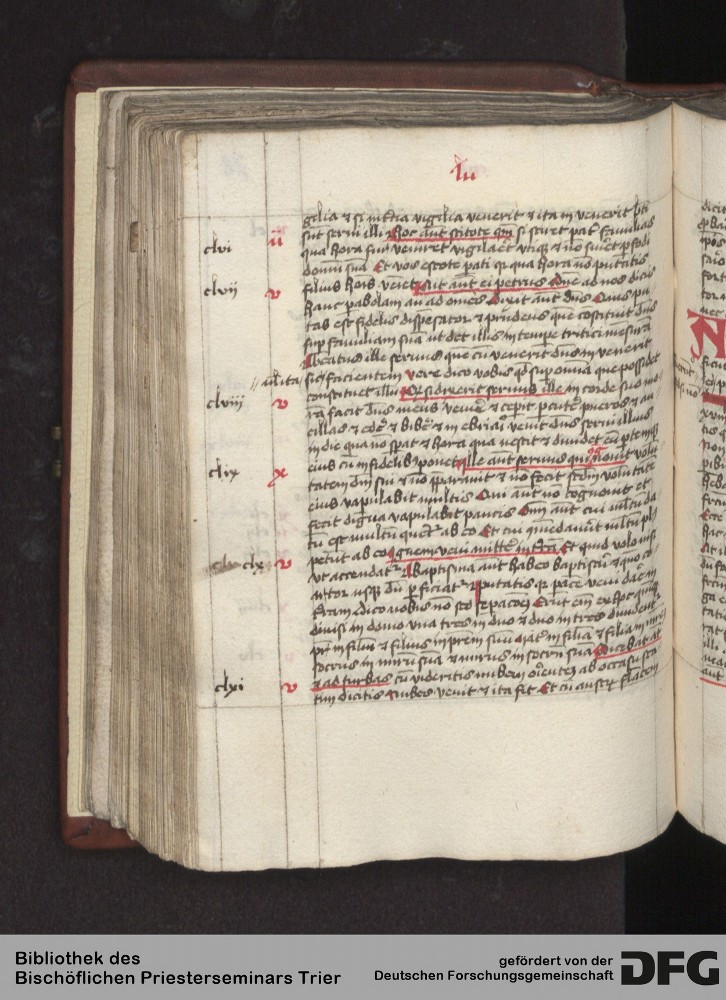 Lu
gilia et si in tertia vigilia venerit et ita in venerit bti
sunt servi illi Hoc aut scitote qm si sciret pat familias
clvi ii qua hora fur veniret vigilaret utiq et no sineret p fodi
domu sua Et vos estote pati qr qua hora no putatis
clvii v filius hois veniet Ait aut ei petrus Dne ad nos dicis
hanc pabolam an ad omes Dixit aut dns Quis pu
tas est fidelis dispesator et prudens que costituit dns
sup familiam sua ut det illis in tempe tritici mesura
Beatus ille servus que cu venerit dns invenerit
ita facientem vere dico vobis qd sup omia que possidet
clviii v constituet illu Qd si dixerit servus ille in corde suo mo
ra facit dns meus venire et ceperit pcute pueros et an
cillas et ede et bibe et inebriari veniet dns servi illius
in die qua no sperat et hora qua nescit et dividet eu ptemq
eius cu infidelib ponet
clix x Ille aut servus qui cognovit volu
tatem dni sui et no pparavit et no fecit scdm voluntate
eius vapulabit multis Qui aut no cognovit et
fecit digna vapulabit paucis Omi aut cui multu da
tu est multu queret ab eo Et cui comedaverut multu pl
petent ab eo
clx v Ignem veni mitte in terra Et quid volo nisi
ut accendat Baptisma aut habeo baptisari et quo co
artor usq du pficiat Putatis qr pace veni dare in
terram Dico vobis no sed sepacoe Erut eni ex hoc quinq
divisi in domo una tres in duo et duo in tres dividentr
pr in filiu et filius in prem suu mat in filia et filia in mrem
socrus in nuru sua et nurus in socru sua Dicebat at
clxi v et ad turbas cu videritis nubem oriente ab occasu sta
tim dicitis Nubes venit et ita fit Et cu austru flatem
Bibliothek des
Bischöflichen Priesterseminars Trier
gefördert von der
Deutschen Forschungsgemeinschaft
DFG